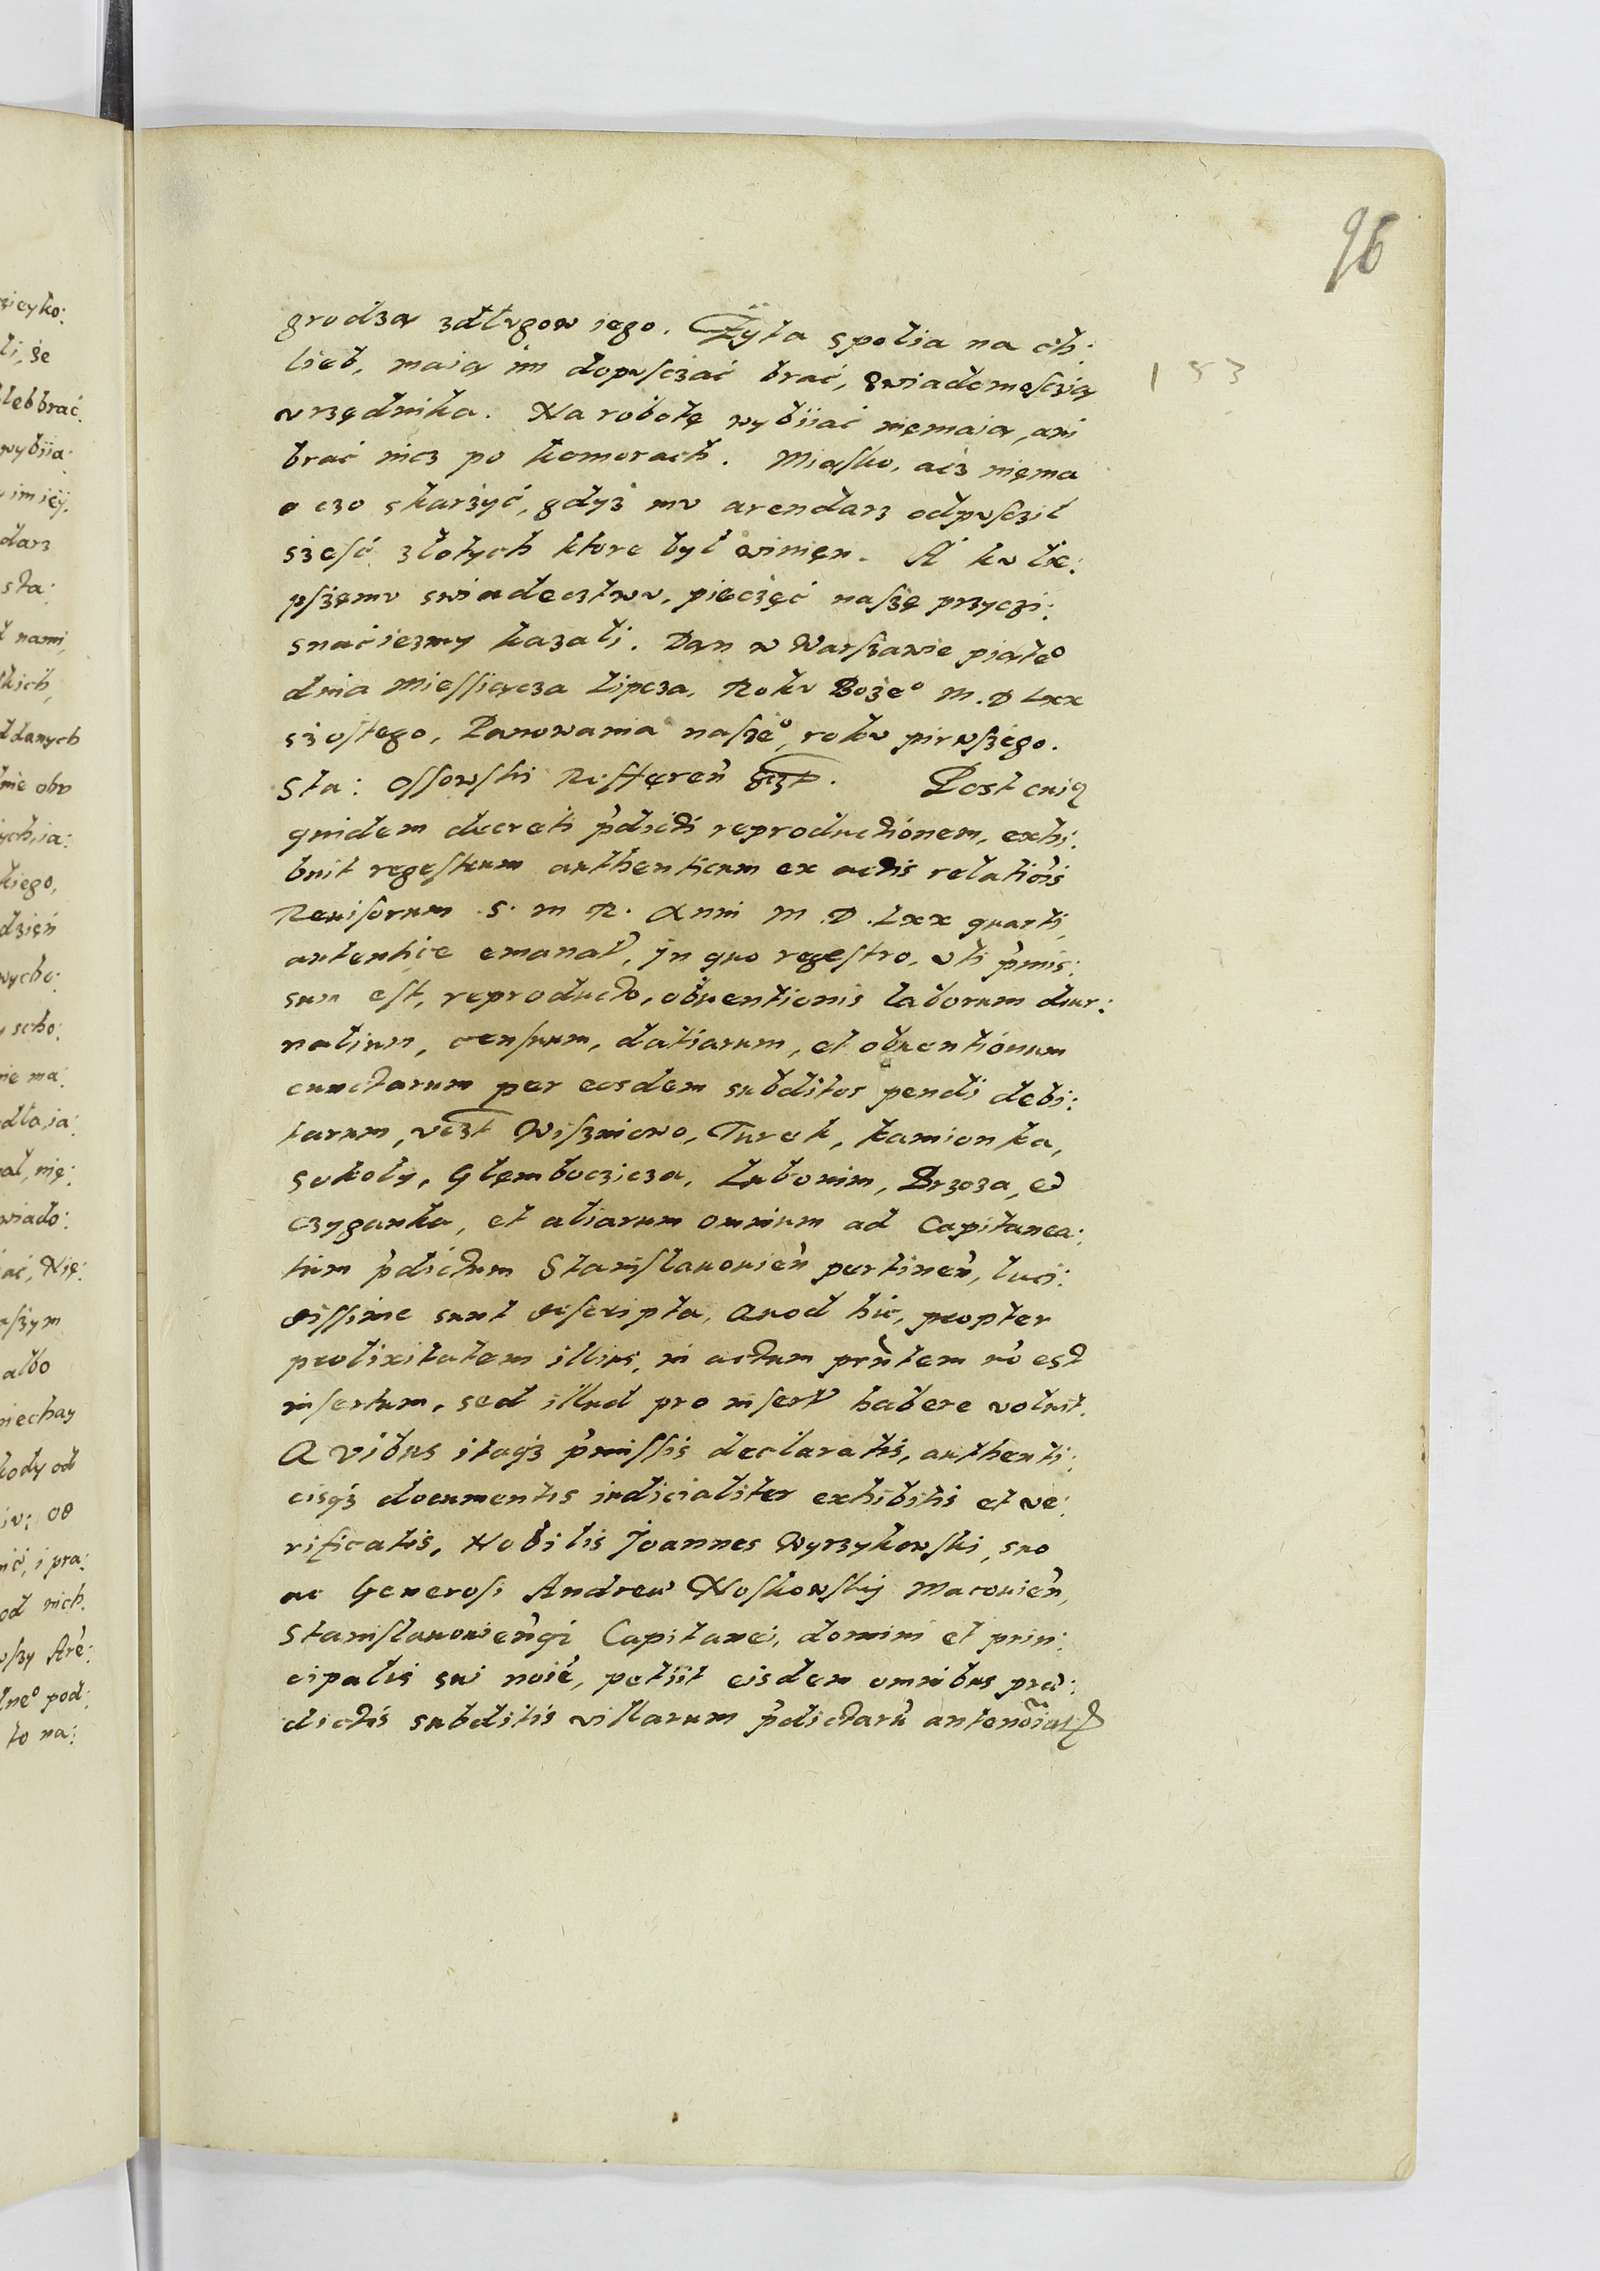 96
153
grodzą zdługow iego. Żyta s polia na ch:
lieb, maią im dopusczać brać, swiadomosczią
vrzędnika. Na robotę wybiiać niemaią, ani
brać nicz po komorach. Miasko, acz niema
o czo skarżyć, gdyż mu arendarz odpusczil
szesć złotych ktore był winien. A ku lie:
pszemu swiadecztwu, pieczęć naszę przyczi:
snąćiezmy kazali. Dan w Warszawie piąteº
dnia Miessiącza Lipcza, Roku Bożeº M. D Lxx
szostego, Panowania naszeº, roku pirwszego.
Sta: Ossowski Refferen̄ sczp. Post cuiq
quidem decreti p̄dicti reproductionem, exhi:
buit regestrum authenticum ex actis relatiōis
Reuisorum S. M R. Anni M. D. Lxx quarti,
autentice emanat̄, In quo regestro, vti p̄mis:
sum est, reproducto, obuentionis laborum diur:
nalium, censuum, datiarum, et obuentionum
cunctarum per eosdem subditos pendi debi:
tarum, vczt Wiszniewo, Turek, Kamionka,
Sokoły, Głemboczicza, Lubonim, Brzoza, et
Czyganka, et aliarum omnium ad Capitanea:
tum p̄dictum Stanislauouien̄ pertinen̄, luci:
dissime sunt descripta, Quod hic, propter
prolixitatem illius, in actum prn̄tem nō est
insertum, sed illud pro insert̄ habere voluit.
Quibus itaqz p̄missis declaratis, authenti:
cisqz documentis iudicialiter exhibitis et ve:
rificatis, Nobilis Joannes Wyrzykowski, suo
ac Generosi Andreae Noskowskij Macouien̄,
Stanislauowien̄qz Capitanei, domini et prin:
cipalis sui noīe, petiit eisdem omnibus prae:
dictis subditis villarum p̄dictarū antenoīat